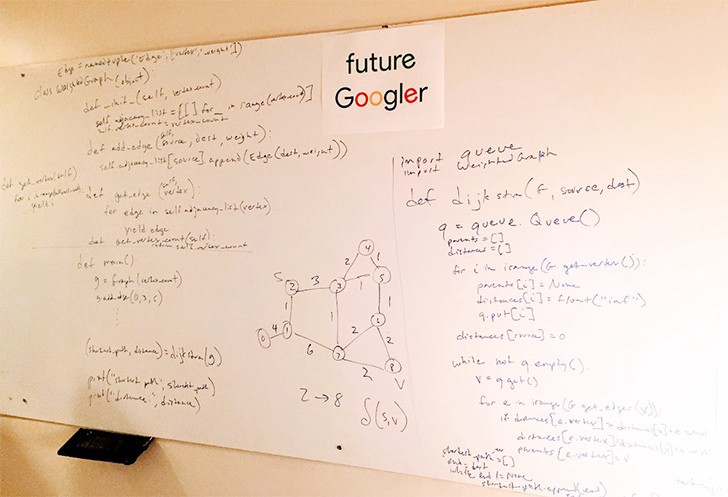 future
Googler
Edge = namedtuple('Edge', ['vertex', 'weight'])
class WeightedGraph(object):
def __init__(self, vertex_count)
self.adjacency_list = [[] for _ in range(vertex_count)]
self.vertex_count = vertex_count
def add_edge(self, source, dest, weight):
self.adjacency_list[source].append(Edge(dest, weight))
def get_vertex(self)
yield i
def get_edge(self, vertex):
for edge in self.adjacency_list(vertex)
yield edge
def get_vertex_count(self):
return self.vertex_count
def main()
g = Graph(vertex_count)
(shortest_path, distance) = dijkstra(g)
print("shortest path", shortest_path)
print("distance", distance)
S
V
2 → 8
δ(s,v)
import queue
import WeightedGraph
def dijkstra(G, source, dest)
q = queue.Queue()
parents = []
distances = []
for i in irange(G.get_vertex()):
parents[i] = None
distances[i] = float("inf")
q.put[i]
distances[source] = 0
while not q.empty().
v = q.get()
for e in irange(G.get_edges(v)):
if distances[e.vertex] > distance[v] + e.
distances[e.vertex]
parents[e.vertex] = v
shortest_path = []
end = dest
while end != None
shortest_path.append(end)